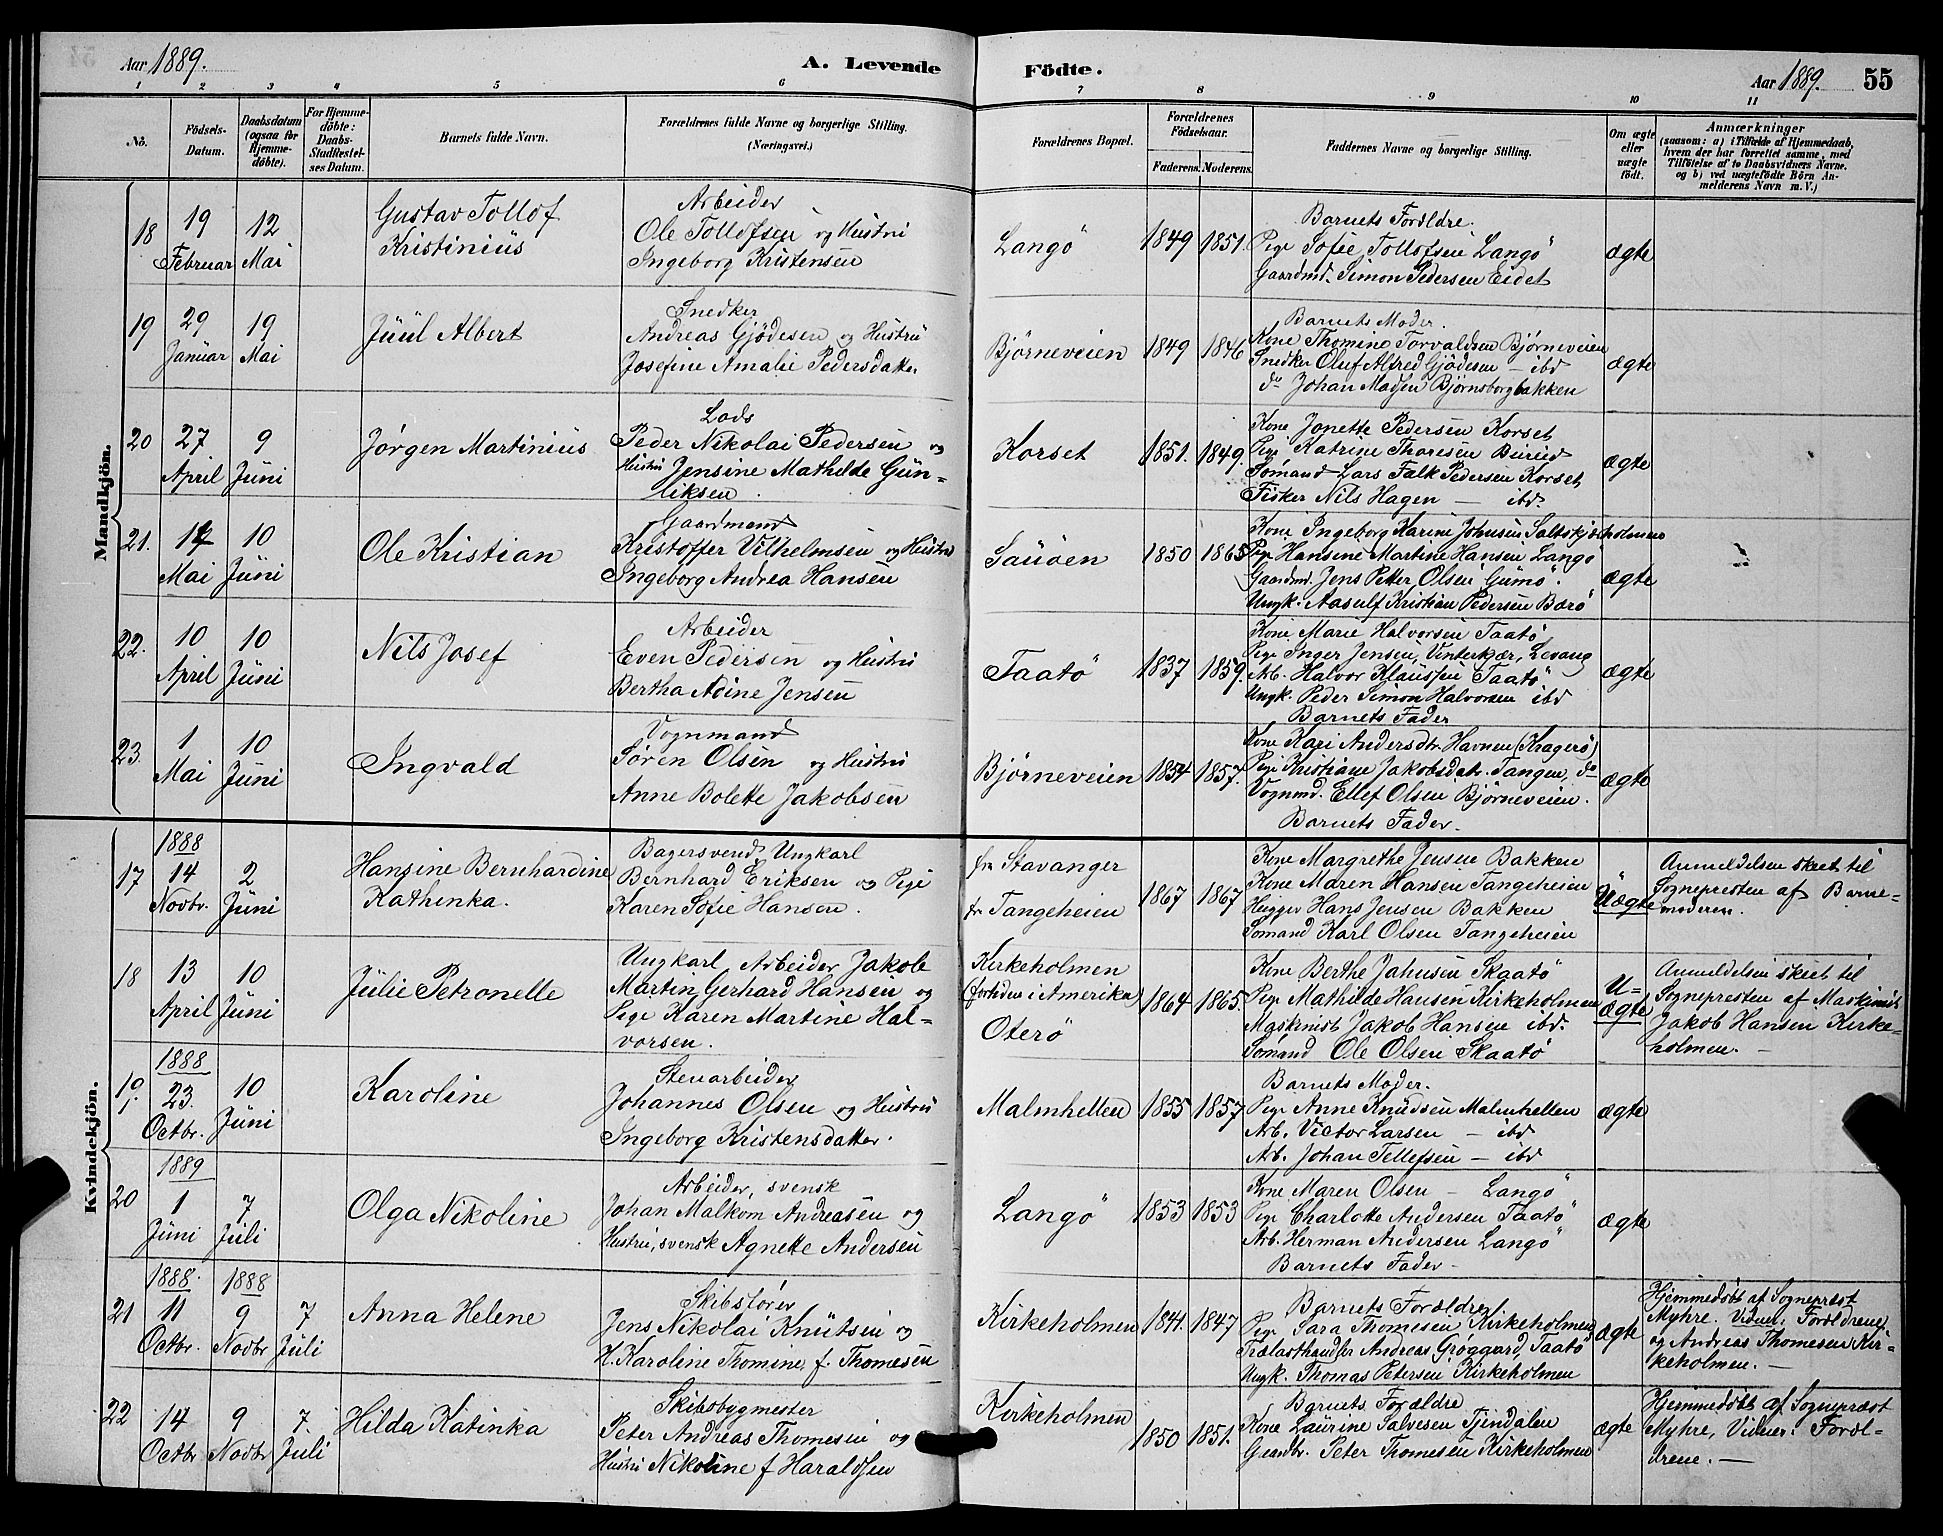 Aar 1889.
A. Levende Födte.
Aar 1889. 55
1 2 3 4 5 6 7 8 9 10 11
No.
Födsels-Datum.
Daabsdatum (ogsaa for Hjemme-döbte).
For Hjemme-döbte: Daabs-Stadfæstel-ses Datum.
Barnets fulde Navn.
Forældrenes fulde Navne og borgerlige Stilling.
(Næringsvei.)
Forældrenes Bopæl.
Forældrenes Födselsaar.
Faderens. Moderens.
Faddernes Navne og borgerlige Stilling.
Om ægte eller uægte födt.
Anmærkninger
(saasom: a) i Tilfælde af Hjemmedaab,
hvem der har forrettet samme, med
Tilföielse af to Daabsvidners Navne.
og b) ved uægtefödte Börn An-
melderens Navn m. V.)
Mandkjön.
18
19 Februar
12 Mai
Gustav Tollof
Kristinius
Arbeider
Ole Tollofsen og Hustru
Ingeborg Kristensen
Langö
1849 1851.
Barnets Forældre.
Pige Sofie Tollofsen Langö
Gaardmd. Simon Pedersen Eidet
ægte
19
29 Januar
19 Mai
Juul Albert
Snedker
Andreas Gjödesen og Hustru
Josefine Amalie Pedersdatter
Björneveien
1849 1846
Barnets Moder.
Kone Thomine Torvaldsen Björneveien
Snedker Oluf Alfred Gjödesen — ibd
do Johan Madsen Björnsborgbakken
ægte
20
27 April
9 Juni
Jørgen Martinius
Lods
Peder Nikolai Pedersen og
Hustru Jensine Mathilde Gun-
liksen.
Korset
1851. 1849.
Kone Jonette Pedersen Korset
Pige Katrine Thoresen Burød
Sömand Lars Falk Pedersen Korset
Fisker Nils Hagen — ibd.
ægte
21.
Mai
10 Juni
Ole Kristian
Gaardmand
Kristoffer Vilhelmsen og Hustru
Ingeborg Andrea Hansen
Sauöen
1850 1865
Kone Ingeborg Karine Johnsen
Pige Hansine Martine Hansen Langö
Gaardmd. Jens Petter Olsen Gumö.
Ungk. Aasulf Kristian Pedersen Barö
ægte
22.
10 April
10 Juni
Nils Josef
Arbeider
Even Pedersen og Hustru
Bertha Adine Jensen
Taatö
1837 1859.
Kone Marie Halvorsen Taatö
Pige Inger Jensen, Vinterkær, Levang
Arb. Halvor Klaussen Taatö
Ungk. Peder Simon Halvorsen ibd
Barnets Fader
ægte
23.
1 Mai
10 Juni
Ingvald
Vognmand
Sören Olsen og Hustru
Anne Bolette Jakobsen
Björneveien
1854 1857.
Kone Kari Andersdtr. Havnen (Kragerö)
Pige Kristiane Jakobsdatr. Tangen, do
Vognmd. Ellef Olsen Björneveien.
Barnets Fader.
ægte
Kvindekjön.
17
1888
14 Novbr.
2 Juni
Hansine Bernhardine
Kathinka.
Bagersvend Ungkarl
Bernhard Eriksen og Pige
Karen Sofie Hansen.
fra Stavanger
fr Tangeheien
1867 1867
Kone Margrethe Jensen Bakken
Kone Maren Hansen Tangeheien
Hans Jensen Bakken
Sömand Karl Olsen Tangeheien
Uægte
Anmeldelsen skeet til
Sognepresten af Barne-
moderen.
18
13 April
10 Juni
Julie Petronelle
Ungkarl, Arbeider Jakob
Martin Gerhard Hansen og
Pige Karen Martine Hal-
vorsen.
Kirkeholmen
(fortiden i Amerika)
Oterö
1864 1865.
Kone Berthe Jahnsen Skaatö
Pige Mathilde Hansen Kirkeholmen
Maskinist Jakob Hansen ibd.
Sömand Ole Olsen Skaatö
U=
ægte
Anmeldelsen skeet til
Sognepresten af Maskinist
Jakob Hansen Kirke-
holmen. —
19.
1888
23. Octbr.
10 Juni
Karoline
Stenarbeider
Johannes Olsen og Hustru
Ingeborg Kristensdatter.
Malmhellen
1855 1857
Barnets Moder.
Pige Anne Knudsen Malmhellen
Arb. Victor Larsen — ibd
Arb. Johan Tellefsen — ibd
ægte
20
1889
1 Juni
7 Juli
Olga Nikoline
Arbeider, svensk
Johan Malkom Andreasen og
Hustru, svensk Agnette Andersen
Langö
1853 1853
Kone Maren Olsen — Langö
Pige Charlotte Andersen Taatö
Arb. Herman Andersen Langö
Barnets Fader —
ægte
21
1888.
11 Octbr.
1888
9 Novbr
7 Juli
Anna Helene
Skibsförer
Jens Nikolai Knutsen og
H. Karoline Thomine f. Thomesen
Kirkeholmen
1841. 1847
Barnets Forældre
Pige Sara Thomesen Kirkeholmen
Trælasthandler Andreas Gröggard, Taatö
Ungk. Thomas Petersen Kirkeholmen
ægte
Hjemmedöbt af Sogneprest
Myhre. Vidner: Forældrene
og Andreas Thomesen Kir-
keholmen. —
22
14 Octbr
9 Novbr
7. Juli
Hilda Katinka
Skibsbygmester
Peter Andreas Thomesen og
Hustru Nikoline f Haraldsen
Kirkeholmen
1850 1851.
Barnets Forældre
Kone Laurine Salvesen Tjendalen
Gaardbr. Peter Thomesen Kirkeholmen
ægte
Hjemmedöbt af Sogneprest
Myhre, Vidner: Foræl-
drene. —